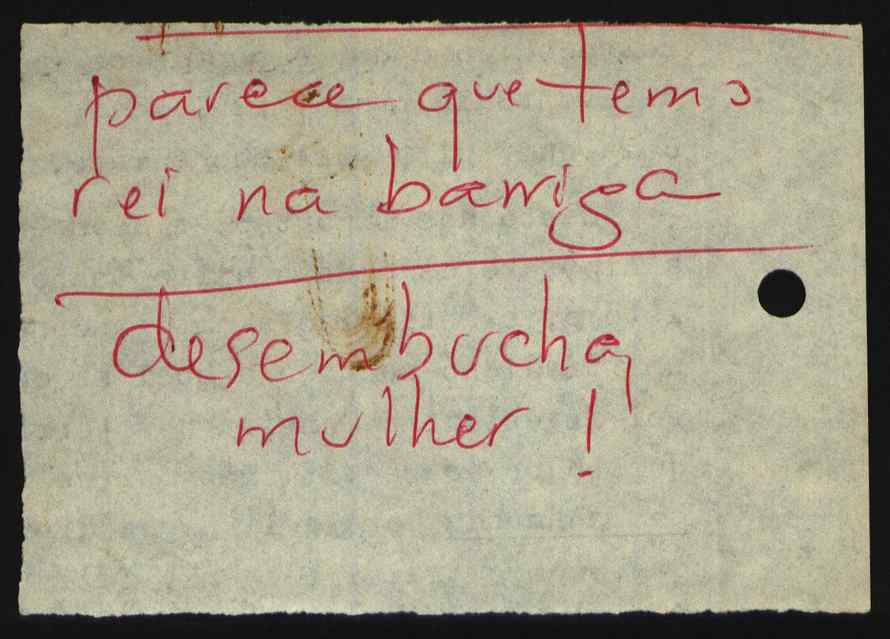 parece que tem o
rei na barriga
desembucha,
mulher!